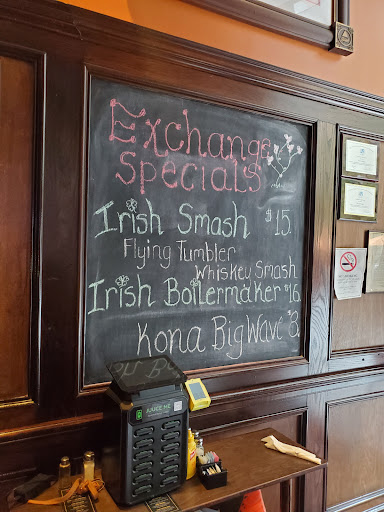 Exchange
Specials
Irish Smash $15.
Flying Tumbler
Whiskey Smash
Irish Boilermaker $16.
Kona Big Wave $8.